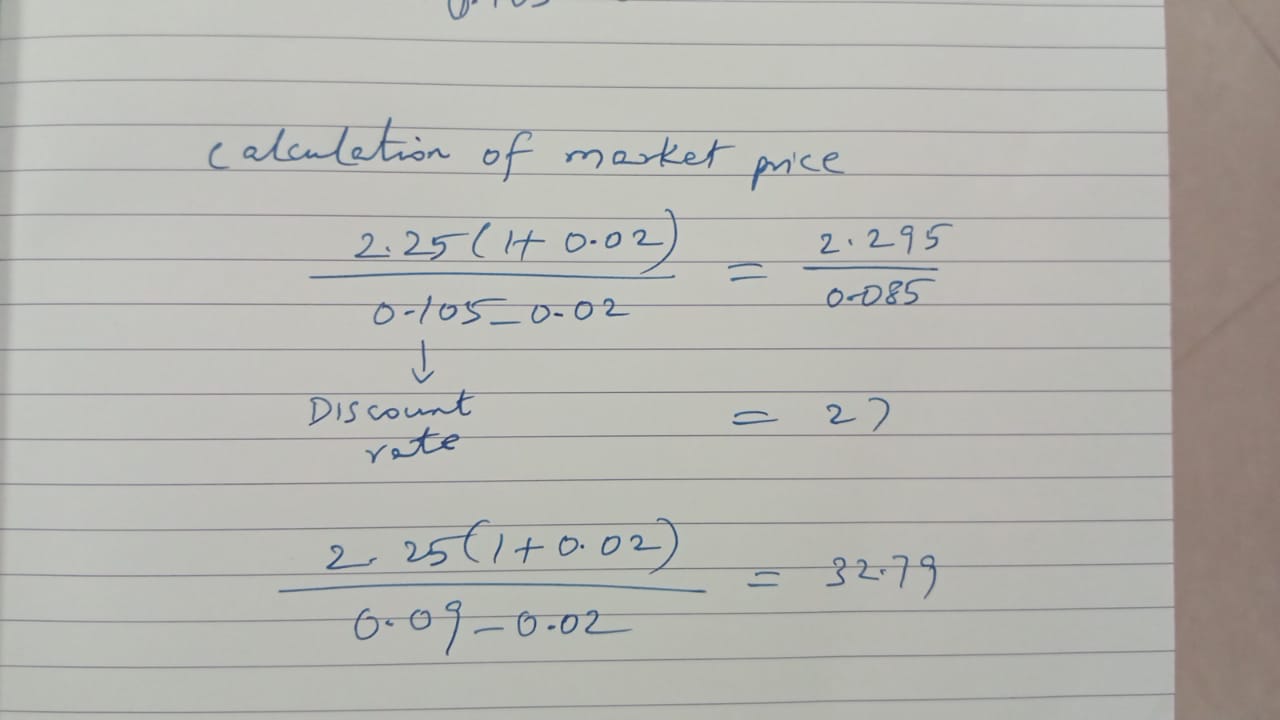 Calculation of market price
2.25(1+ 0.02) = 2.295
0.105-0.02 0.085
↓
Discount = 27
rate
2.25(1+0.02) = 32.79
0.09-0.02